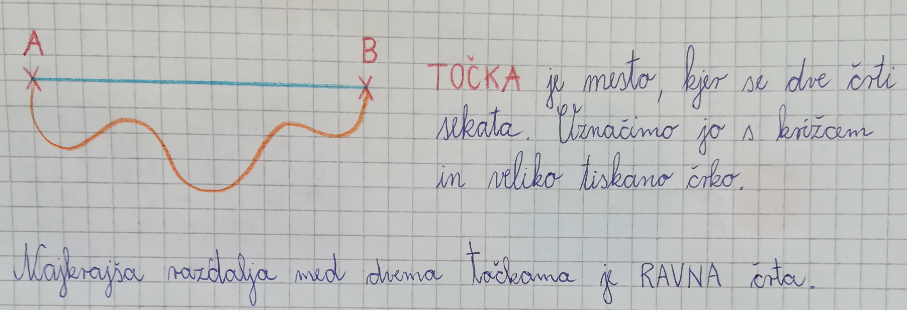 A
B
TOČKA je mesto, kjer se dve črti
sekata. Označimo jo s križcem
in veliko tiskano črko.
Najkrajša razdalja med dvema točkama je RAVNA črta.